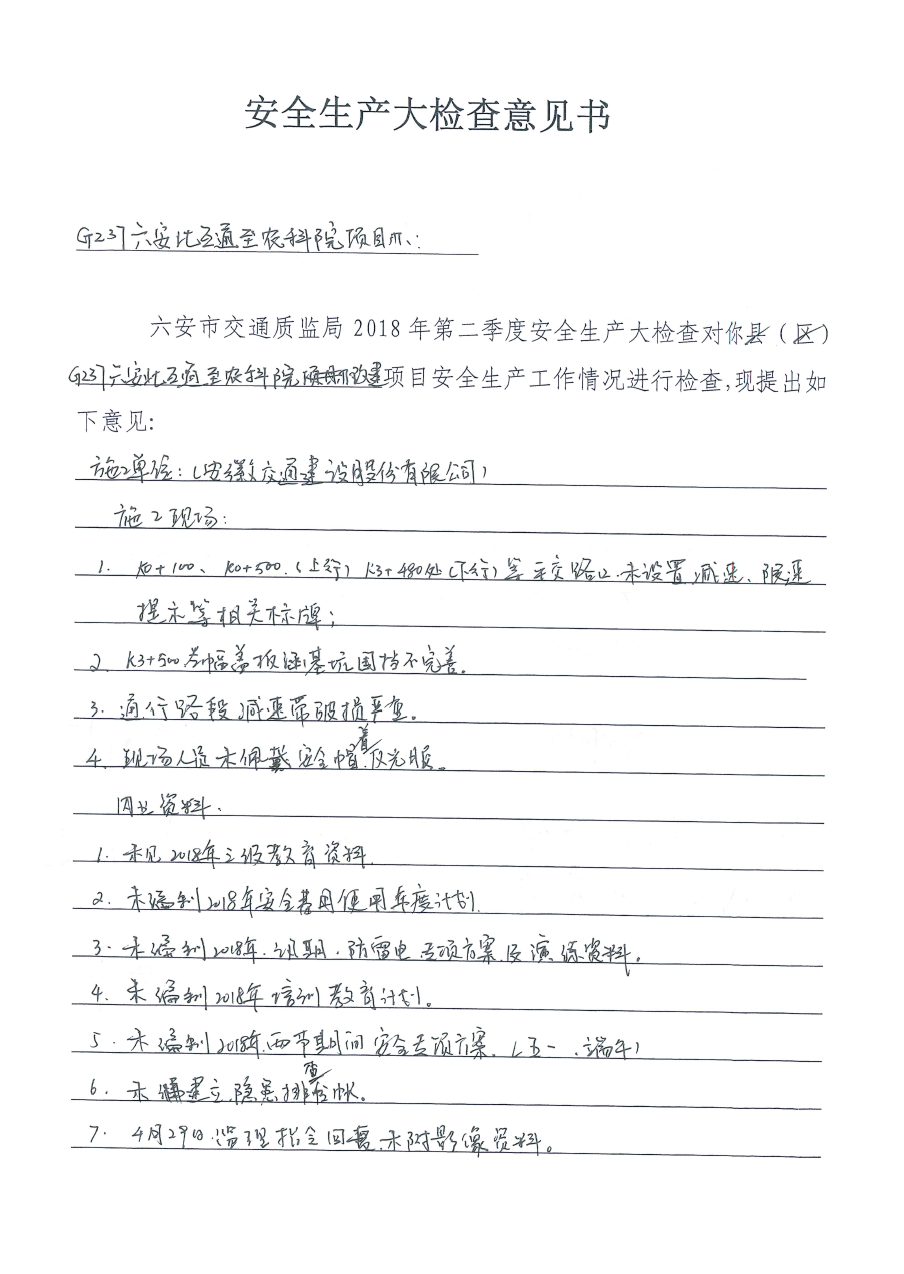 安全生产大检查意见书
G237六安北互通至农科院项目办:
六安市交通质监局 2018 年第二季度安全生产大检查对你县（区）
G237六安北互通至农科院改建项目安全生产工作情况进行检查,现提出如
下意见:
施工单位:(安徽交通建设股份有限公司)
施工现场:
1. K0+100、K0+500.(上行) K3+480处(下行)等平交路口.未设置减速、限速
提示等相关标牌;
2. K3+500左幅盖板涵基坑围挡不完善.
3. 通行路段减速带破损严重。
4. 现场人员未佩戴安全帽.着反光服。
内业资料.
1. 未见2018年三级教育资料.
2. 未编制2018年安全费用使用年度计划.
3. 未编制2018年.汛期.防雷电专项方案及演练资料。
4. 未编制2018年培训教育计划。
5. 未编制2018年.两节期间安全专项方案.(五一、端午)
6. 未建立隐患排查台帐。
7. 4月29日.监理指令回复.未附影像资料。